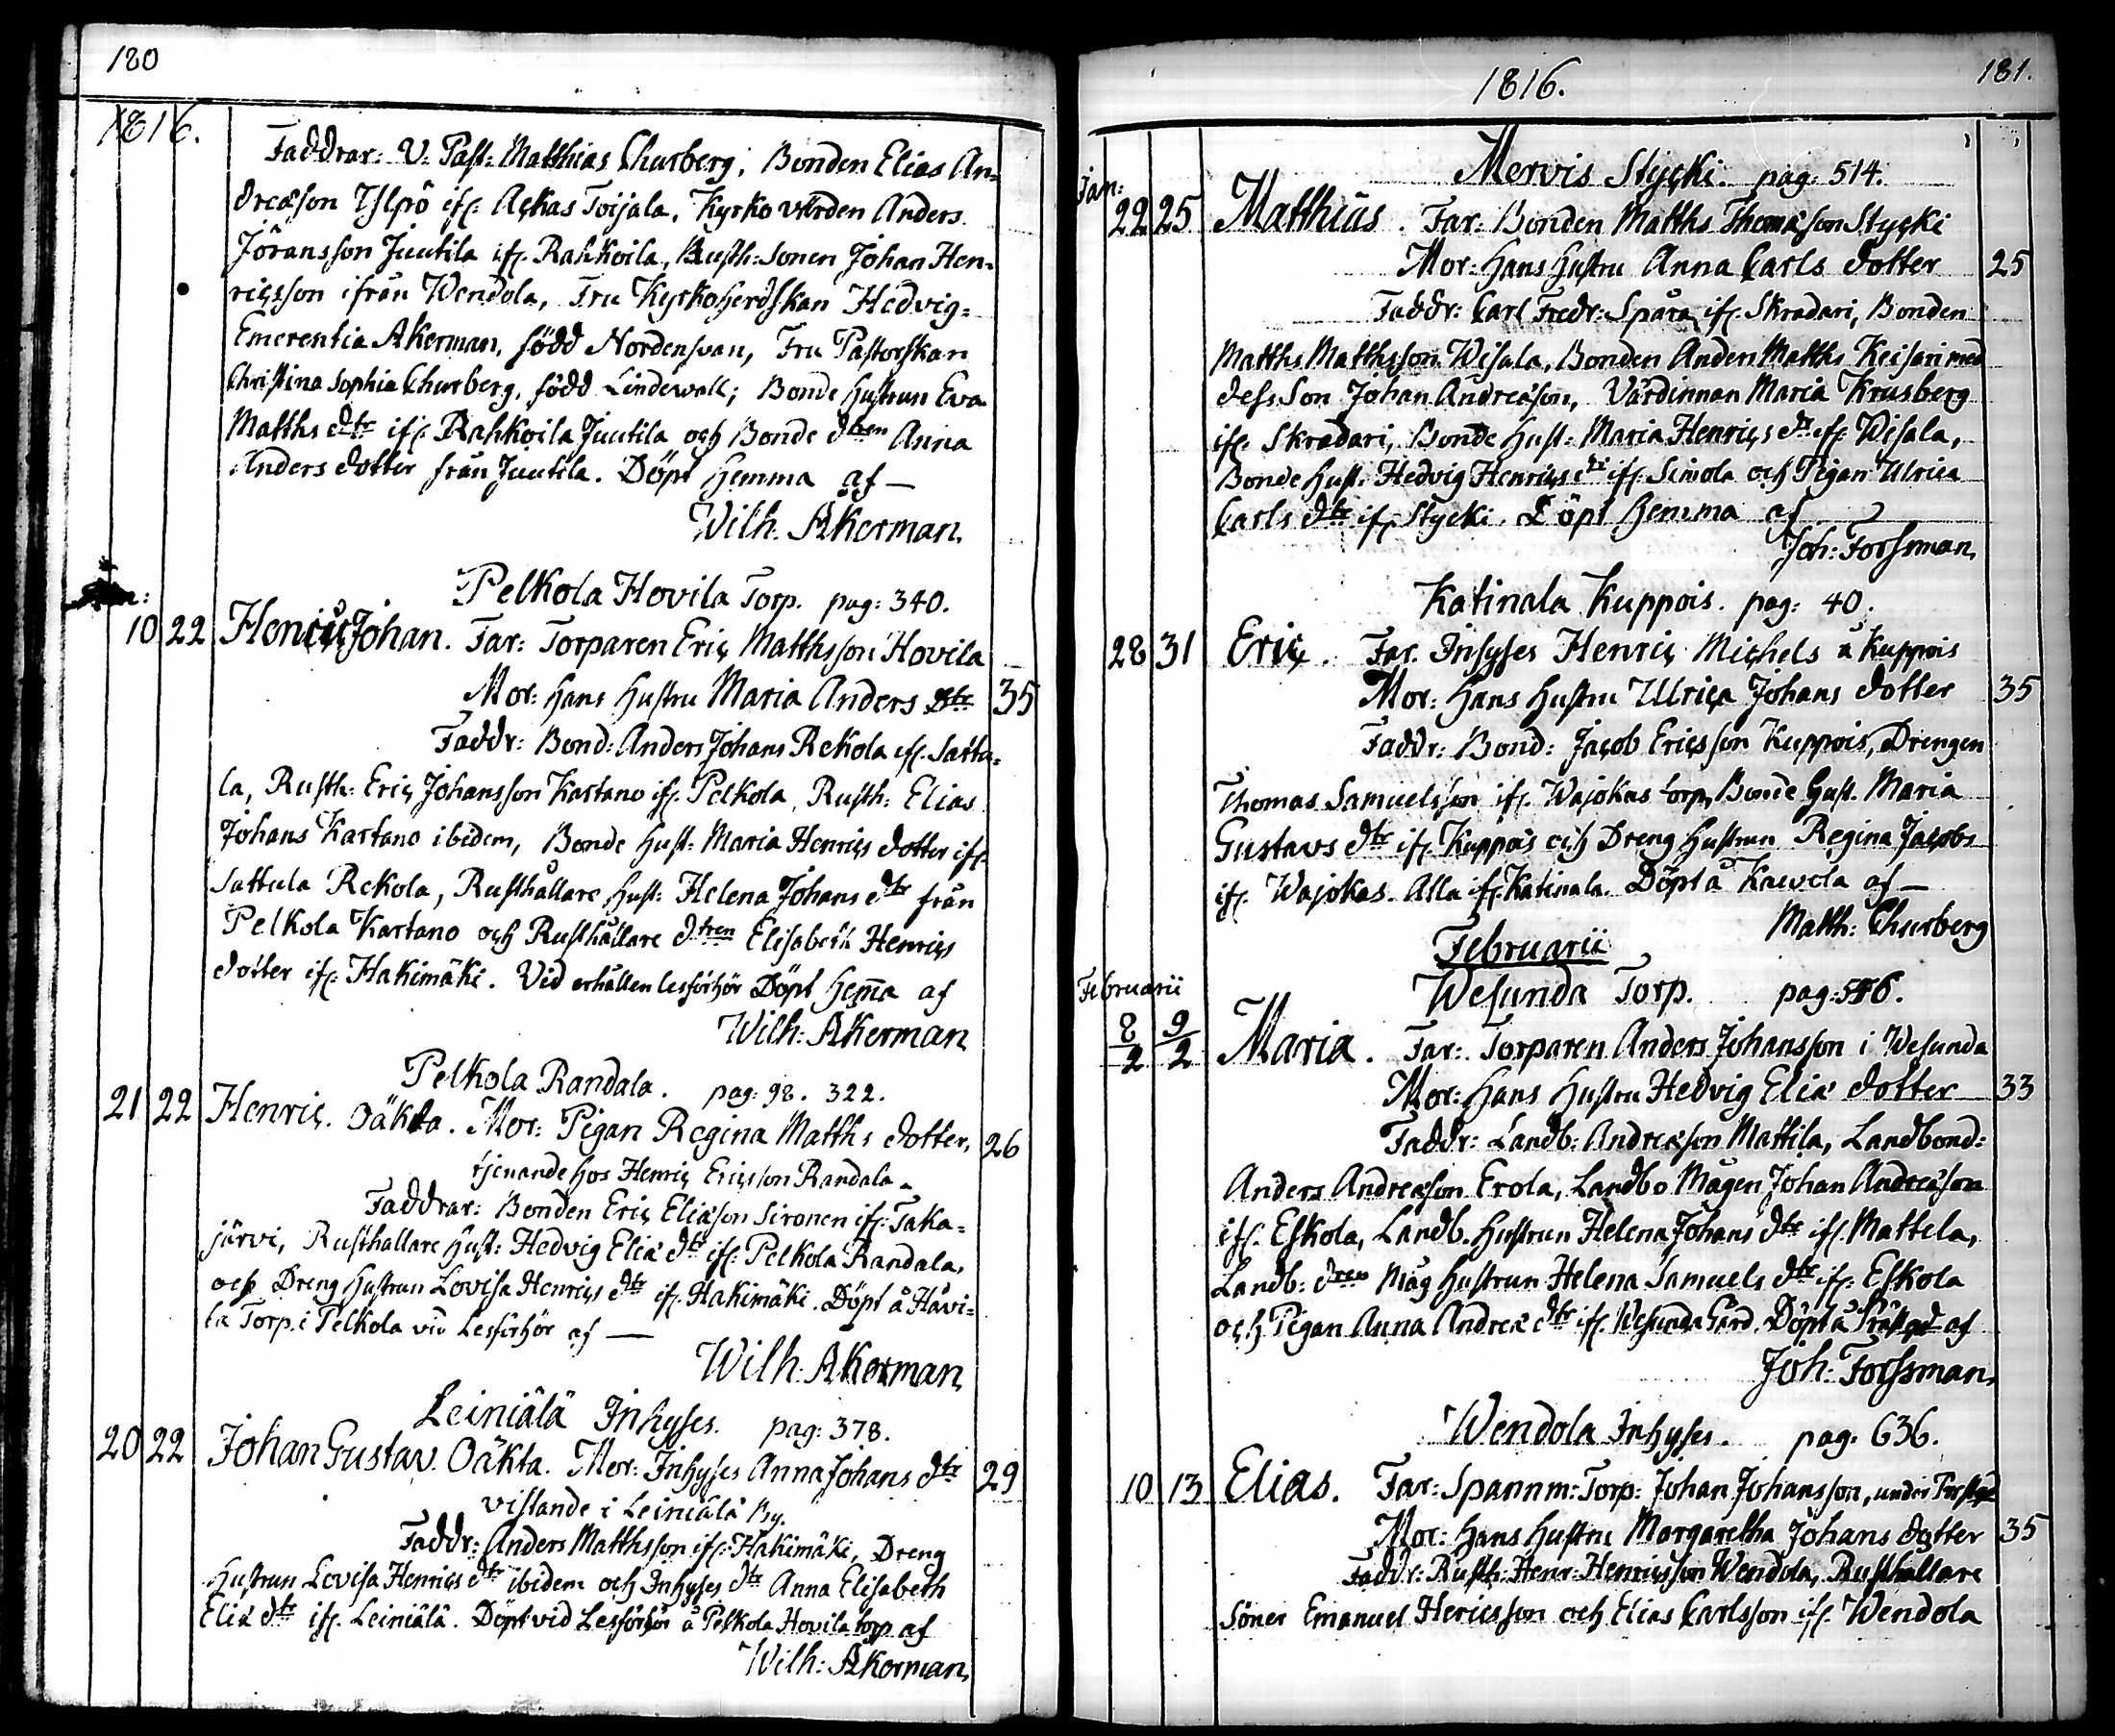 180
1816.
Faddrar: V: Past: Matthias Churberg; Bonden Elias An=
dreæson Yspö ifr. Ackas Toijala, Kyrkovärden Anders
Jöransson Juutila ifr. Rahkoila, Rusth: sonen Johan Hen=
ricsson ifrån Wendola, Fru Kyrkoherdskan Hedvig=
Emerentia Åkerman, född Nordensvan, Fru Pastorskan
Christina Sophia Churberg, född Lindewall; Bonde hustrun Eva
Matths dtr ifr. Rahkoila Juutila och Bonde dtren Anna
Anders dotter från Juutila. Döpt hemma af —
Wilh. Åkerman.
Pelkola Hovila Torp. pag: 340.
10 22 Henric Johan. Far: Torparen Eric Matthsson Hovila
Mor: hans hustru Maria Anders dtr 35
Faddr: Bond: Anders Johans Rekola ifr. Sattu=
la, Rusth: Eric Johansson Kartano ifr. Pelkola, Rusth: Elias
Johans Kartano ibidem, Bonde hust: Maria Henrics dotter ifr.
Sattula Rekola, Rusthållare hust: Helena Johans dtr från
Pelkola Kartano och Rusthållare dtren Elisabeth Henrics
dotter ifr. Hakimäki. Vid erhållen lesförhör Döpt hem̄a af
Wilh: Åkerman
Pelkola Randala. pag: 98. 322.
21 22 Henric. Oäkta. Mor: Pigan Regina Matths dotter, 26
tjenande hos Henric Ericsson Randala.
Faddrar: Bonden Eric Eliæson Sironen ifr. Taka=
järvi, Rusthallare hust: Hedvig Eliæ dtr ifr. Pelkola Randala,
och Dreng hustrun Lovisa Henrics dtr ifr. Hakimäki. Döpt å Hävi=
la Torp. i Pelkola vid Lesförhör af —
Wilh: Åkerman
Leiniälä Inhyses. pag: 378.
20 22 Johan Gustav. Oäkta. Mor: Inhyses Anna Johans dtr 29
vistande i Leiniälä By.
Faddr: Anders Matthsson ifr. Hakimäki, Dreng
hustrun Lovisa Henrics dtr ibidem och Inhyses dtr Anna Elisabeth
Eliæ dtr ifr. Leiniälä. Döpt vid Lesförhör å Pelkola Hovila torp af
Wilh: Åkerman,
1816. 181.
Mervis Stycki. pag: 514.
Jan:
22 25 Matthias. Far: Bonden Matths Thomæson Stycki
Mor: hans hustru Anna Carls dotter 25
Faddr: Carl Fredr: Spåra ifr. Skradari, Bonden
Matths Matthsson Wisala, Bonden Anders Matths Keisari med
dess Son Johan Andreæson, Värdinnan Maria Krusberg
ifr. Skradari, Bonde hust: Maria Henrics dr ifr. Wisala,
Bonde hust: Hedvig Henrics dtr ifr. Simola och Pigan Ulrica
Carls dtr ifr. Stycki. Döpt hemma af
Joh: Forssman,
Katinala Kuppois. pag: 40.
28 31 Eric. Far. Inhyses Henric Michels å Kuppois
Mor: hans hustru Ulrica Johans dotter 35
Faddr: Bond: Jacob Ericsson Kuppois, Drengen
Thomas Samuelsson ifr. Wajokas torp, Bonde hust. Maria
Gustavs dtr ifr. Kuppois och Dreng hustrun Regina Jacobs
ifr. Wajokas. Alla ifr. Katinala. Döpt å Kaevola af —
Matth: Churberg
Februarii
Februarii
Wesunda Torp. pag: 546.
8/2 9/2 Maria. Far: Torparen Anders Johansson i Wesunda
Mor: hans hustru Hedvig Eliæ dotter 33
Faddr: Landb: Andreæson Mattila, Landbond:
Anders Andreæson Erola, Landbo Mågen Johan Andreæson
ifr. Eskola, Landb. hustrun Helena Johans dtr ifr. Mattela,
Landb: dren Måg hustrun Helena Samuels dtr ifr. Eskola
och Pigan Anna Andreæ dtr ifr. Wesunda Gård. Döpt å Prästgd af
Joh: Forssman,
Wendola Inhyses. pag: 636.
10 13 Elias. Far: Spannm: Torp: Johan Johansson, under
Mor: hans hustru Margaretha Johans dotter 35
Faddr: Rusth: Henr: Henricsson Wendola, Rusthallare
söner Emanuel Hericsson och Elias Carlsson ifr. Wendola